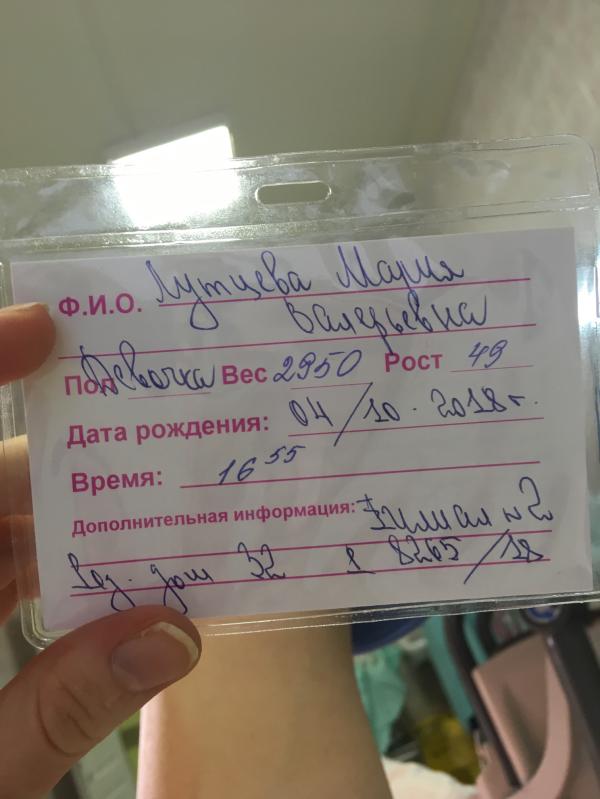 Ф.И.О. Лутцева Мария
Валерьевна
Пол Девочка Вес 2950 Рост 49
Дата рождения: 04/10.2018г.
Время: 16 55
Дополнительная информация: Филиал №2
Род. дом 32 8265/18